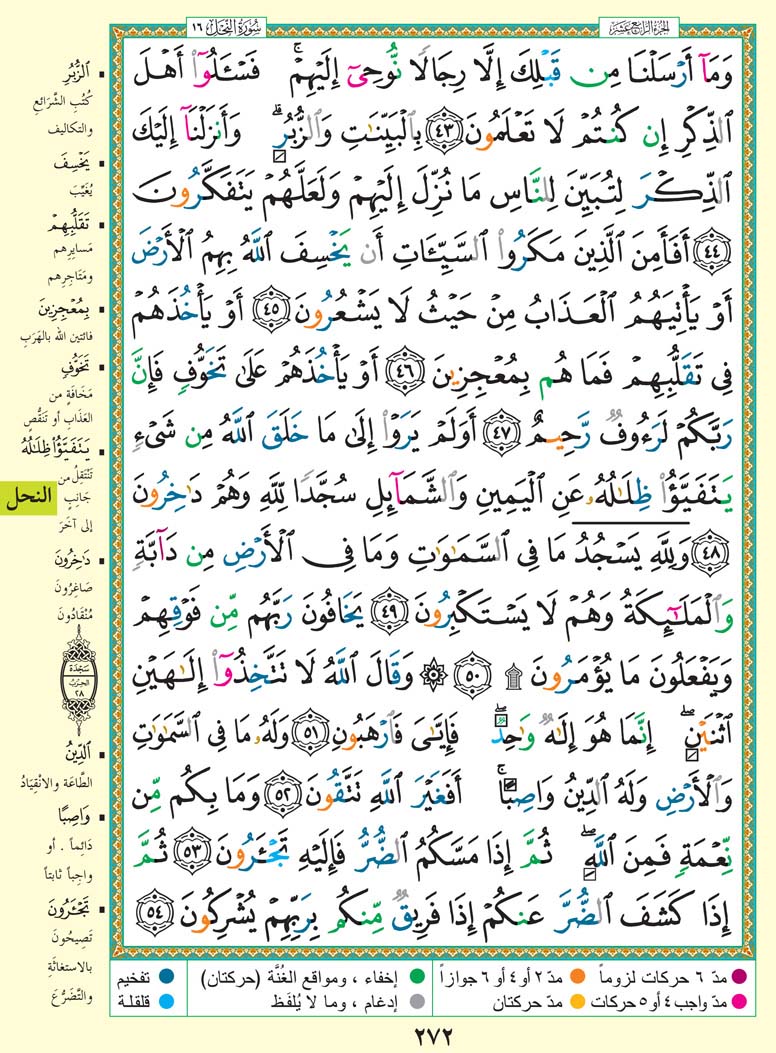 الجزء الرابع عشر
سورة النحل ١٦
وَمَآ أَرۡسَلۡنَا مِن قَبۡلِكَ إِلَّا رِجَالٗا نُّوحِيٓ إِلَيۡهِمۡۖ فَسۡـَٔلُوٓاْ أَهۡلَ
ٱلذِّكۡرِ إِن كُنتُمۡ لَا تَعۡلَمُونَ ٤٣ بِٱلۡبَيِّنَٰتِ وَٱلزُّبُرِۗ وَأَنزَلۡنَآ إِلَيۡكَ
ٱلذِّكۡرَ لِتُبَيِّنَ لِلنَّاسِ مَا نُزِّلَ إِلَيۡهِمۡ وَلَعَلَّهُمۡ يَتَفَكَّرُونَ
٤٤ أَفَأَمِنَ ٱلَّذِينَ مَكَرُواْ ٱلسَّيِّـَٔاتِ أَن يَخۡسِفَ ٱللَّهُ بِهِمُ ٱلۡأَرۡضَ
أَوۡ يَأۡتِيَهُمُ ٱلۡعَذَابُ مِنۡ حَيۡثُ لَا يَشۡعُرُونَ ٤٥ أَوۡ يَأۡخُذَهُمۡ
فِي تَقَلُّبِهِمۡ فَمَا هُم بِمُعۡجِزِينَ ٤٦ أَوۡ يَأۡخُذَهُمۡ عَلَىٰ تَخَوُّفٖ فَإِنَّ
رَبَّكُمۡ لَرَءُوفٞ رَّحِيمٌ ٤٧ أَوَلَمۡ يَرَوۡاْ إِلَىٰ مَا خَلَقَ ٱللَّهُ مِن شَيۡءٖ
يَتَفَيَّؤُاْ ظِلَٰلُهُۥ عَنِ ٱلۡيَمِينِ وَٱلشَّمَآئِلِ سُجَّدٗا لِّلَّهِ وَهُمۡ دَٰخِرُونَ
٤٨ وَلِلَّهِ يَسۡجُدُۤ مَا فِي ٱلسَّمَٰوَٰتِ وَمَا فِي ٱلۡأَرۡضِ مِن دَآبَّةٖ
وَٱلۡمَلَٰٓئِكَةُ وَهُمۡ لَا يَسۡتَكۡبِرُونَ ٤٩ يَخَافُونَ رَبَّهُم مِّن فَوۡقِهِمۡ
وَيَفۡعَلُونَ مَا يُؤۡمَرُونَ ۩ ٥٠ ۞ وَقَالَ ٱللَّهُ لَا تَتَّخِذُوٓاْ إِلَٰهَيۡنِ
ٱثۡنَيۡنِۖ إِنَّمَا هُوَ إِلَٰهٞ وَٰحِدٞ فَإِيَّٰيَ فَٱرۡهَبُونِ ٥١ وَلَهُۥ مَا فِي ٱلسَّمَٰوَٰتِ
وَٱلۡأَرۡضِ وَلَهُ ٱلدِّينُ وَاصِبًاۚ أَفَغَيۡرَ ٱللَّهِ تَتَّقُونَ ٥٢ وَمَا بِكُم مِّن
نِّعۡمَةٖ فَمِنَ ٱللَّهِۖ ثُمَّ إِذَا مَسَّكُمُ ٱلضُّرُّ فَإِلَيۡهِ تَجۡـَٔرُونَ ٥٣ ثُمَّ
إِذَا كَشَفَ ٱلضُّرَّ عَنكُمۡ إِذَا فَرِيقٞ مِّنكُم بِرَبِّهِمۡ يُشۡرِكُونَ ٥٤
ٱلزُّبُرِ
كُتُبِ الشَّرَائعِ
والتكاليف
يَخْسِفَ
يُغَيِّبَ
تَقَلُّبِهِمْ
مَسايرِهم
ومَتَاجِرِهم
بِمُعْجِزِينَ
فائتين الله بالهَرَبِ
تَخَوُّفٍ
مَخَافَةٍ من
العَذَاب أو تَنَقُّصٍ
يَتَفَيَّؤُاْ ظِلَٰلُهُ
تَنْتَقِلُ من
جَانِبٍ
إلى آخَرَ
النحل
دَٰخِرُونَ
صَاغِرُونَ
مُنْقَادُونَ
سَجْدَة
الحزب
٢٨
ٱلدِّينُ
الطَّاعَة والانْقِيَادُ
وَاصِبًا
دَائِماً . أو
واجِباً ثابتاً
تَجْـَٔرُونَ
تَصِيحُونَ
بالاستغاثَةِ
والتَّضَرُّعِ
مدّ ٦ حركات لزوماً
مدّ ٢ أو ٤ أو ٦ جوازاً
إخفاء ، ومواقع الغُنَّة (حركتان)
تفخيم
مدّ واجب ٤ أو ٥ حركات
مدّ حركتان
إدغام ، وما لا يُلفَظ
قلقلة
٢٧٢